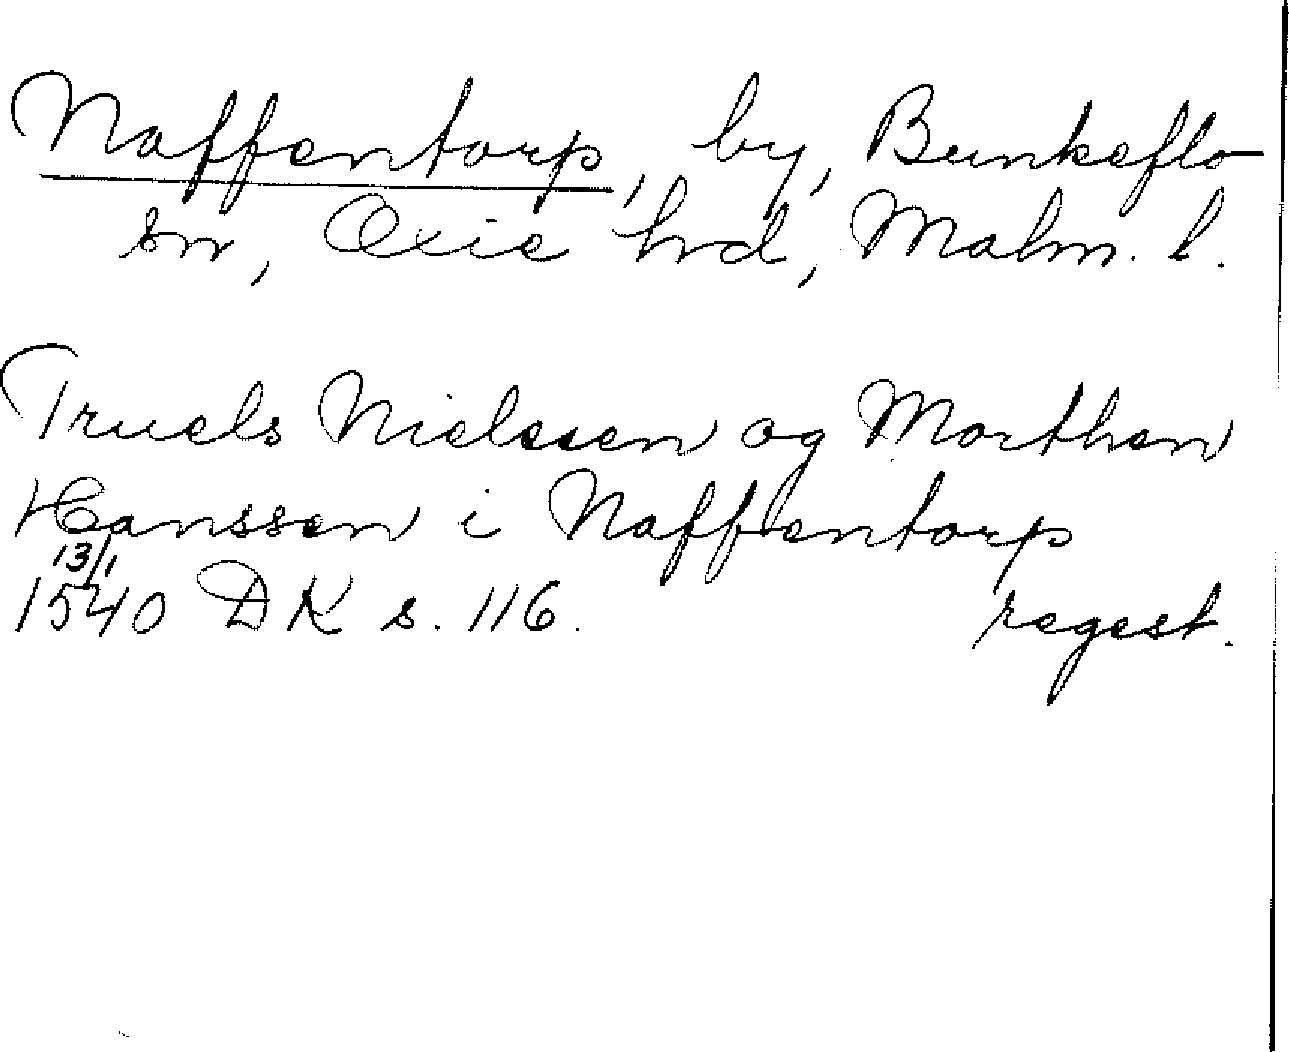 Naffentorp, by, Bunkeflo
sn, Oxie hrd, Malm. l.
Truels Nielssen og Morthen
Hanssen i Naffentorp
13/1
1540 DK s. 116. regest.